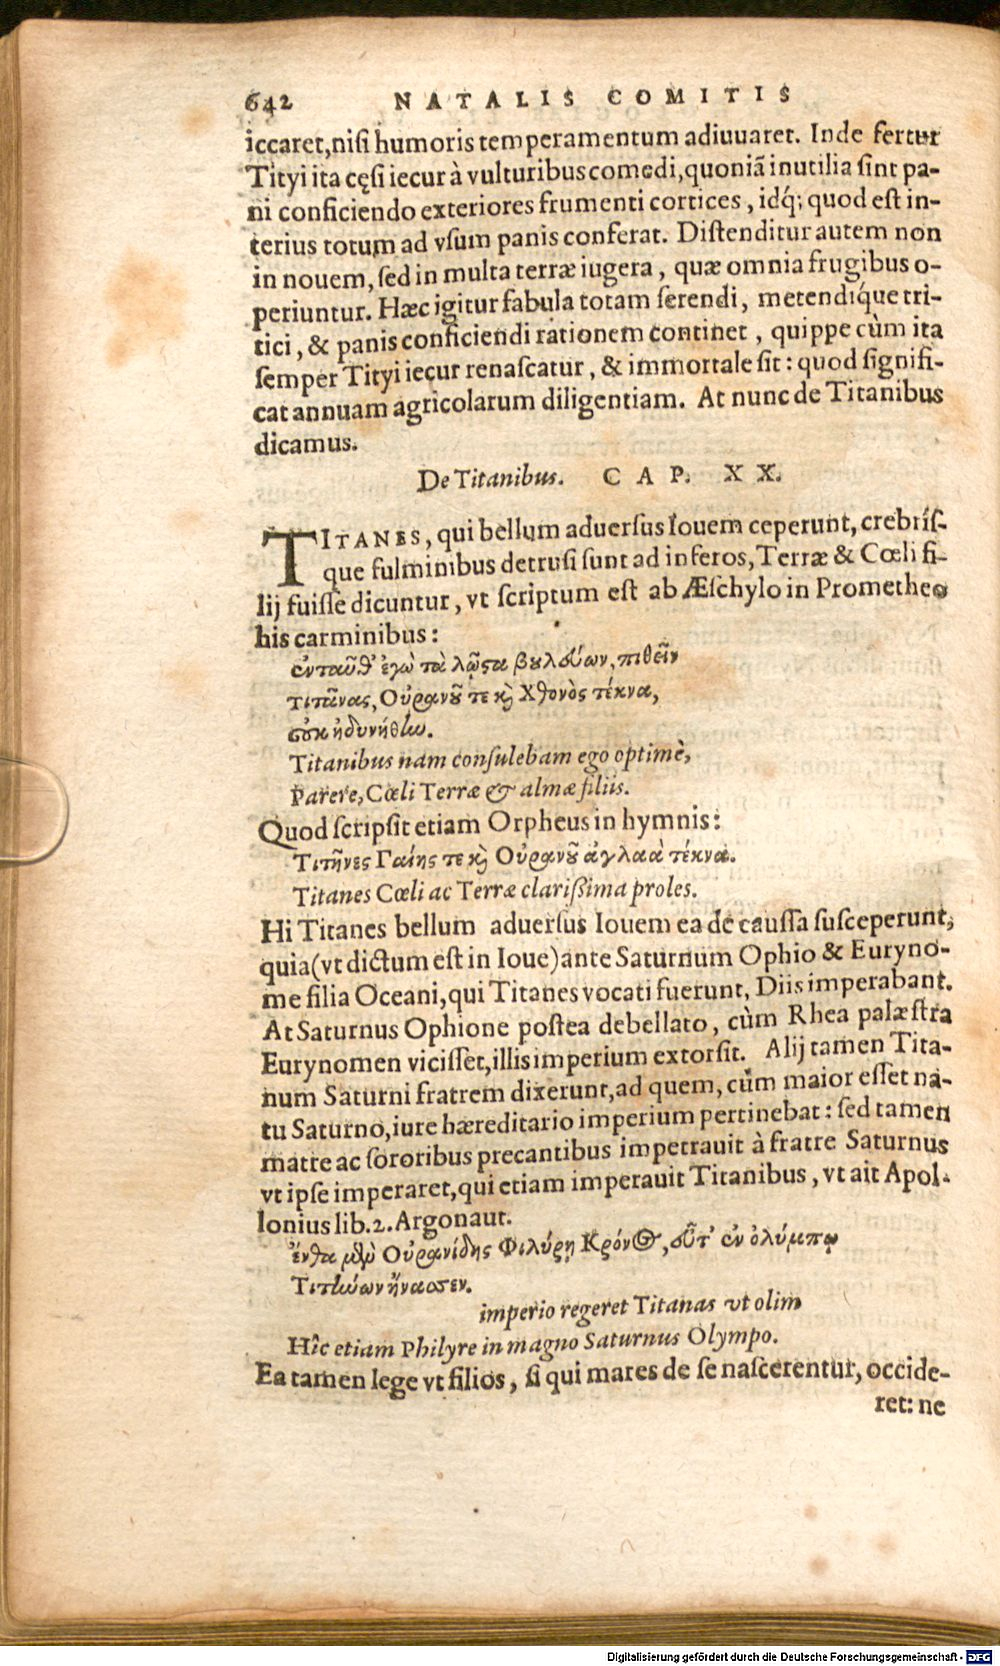 642 NATALIS COMITIS
iccaret,nisi humoris temperamentum adiuuaret. Inde fertur
Tityi ita cęsi iecur à vulturibus comedi,quoniã inutilia sint pa-
ni conficiendo exteriores frumenti cortices, idq́; quod est in-
terius totum ad vsum panis conferat. Distenditur autem non
in nouem, sed in multa terræ iugera, quæ omnia frugibus o-
periuntur. Hæc igitur fabula totam serendi, metendiq́ue tri-
tici, & panis conficiendi rationem continet, quippe cùm ita
semper Tityi iecur renascatur, & immortale sit: quod signifi-
cat annuam agricolarum diligentiam. At nunc de Titanibus
dicamus.
De Titanibus. CAP. XX.
TITANES, qui bellum aduersus Iouem ceperunt, crebrís-
que fulminibus detrusi sunt ad inferos, Terræ & Cœli fi-
lij fuisse dicuntur, vt scriptum est ab Æschylo in Prometheo
his carminibus:
ἐνταῦθ᾽ ἐγὼ τὰ λῷστα βουλεύων, πιθεῖν
τιτᾶνας, Οὐρανοῦ τε καὶ Χθονὸς τέκνα,
οὐκ ἠδυνήθην.
Titanibus nam consulebam ego optimè,
Parere, Cœli Terræ & almæ filiis.
Quod scripsit etiam Orpheus in hymnis:
Τιτῆνες Γαίης τε καὶ Οὐρανοῦ ἀγλαὰ τέκνα.
Titanes Cœli ac Terræ clarißima proles.
Hi Titanes bellum aduersus Iouem ea de caussa susceperunt,
quia(vt dictum est in Ioue)ante Saturnum Ophio & Euryno-
me filia Oceani,qui Titanes vocati fuerunt, Diis imperabant.
At Saturnus Ophione postea debellato, cùm Rhea palæstra
Eurynomen vicisset,illis imperium extorsit. Alij tamen Tita-
num Saturni fratrem dixerunt,ad quem, cùm maior esset na-
tu Saturno,iure hæreditario imperium pertinebat: sed tamen
matre ac sororibus precantibus impetrauit à fratre Saturnus
vt ipse imperaret,qui etiam imperauit Titanibus, vt ait Apol-
lonius lib.2. Argonaut.
ἔνθα μὲν Οὐρανίδης Φιλύρῃ Κρόνος, εὖτ᾽ ἐν ὀλύμπῳ
Τιτήνων ἤνασσεν.
imperio regeret Titanas vt olim
Hîc etiam Philyre in magno Saturnus Olympo.
Ea tamen lege vt filios, si qui mares de se nascerentur, occide-
ret: ne
Digitalisierung gefördert durch die Deutsche Forschungsgemeinschaft - DFG